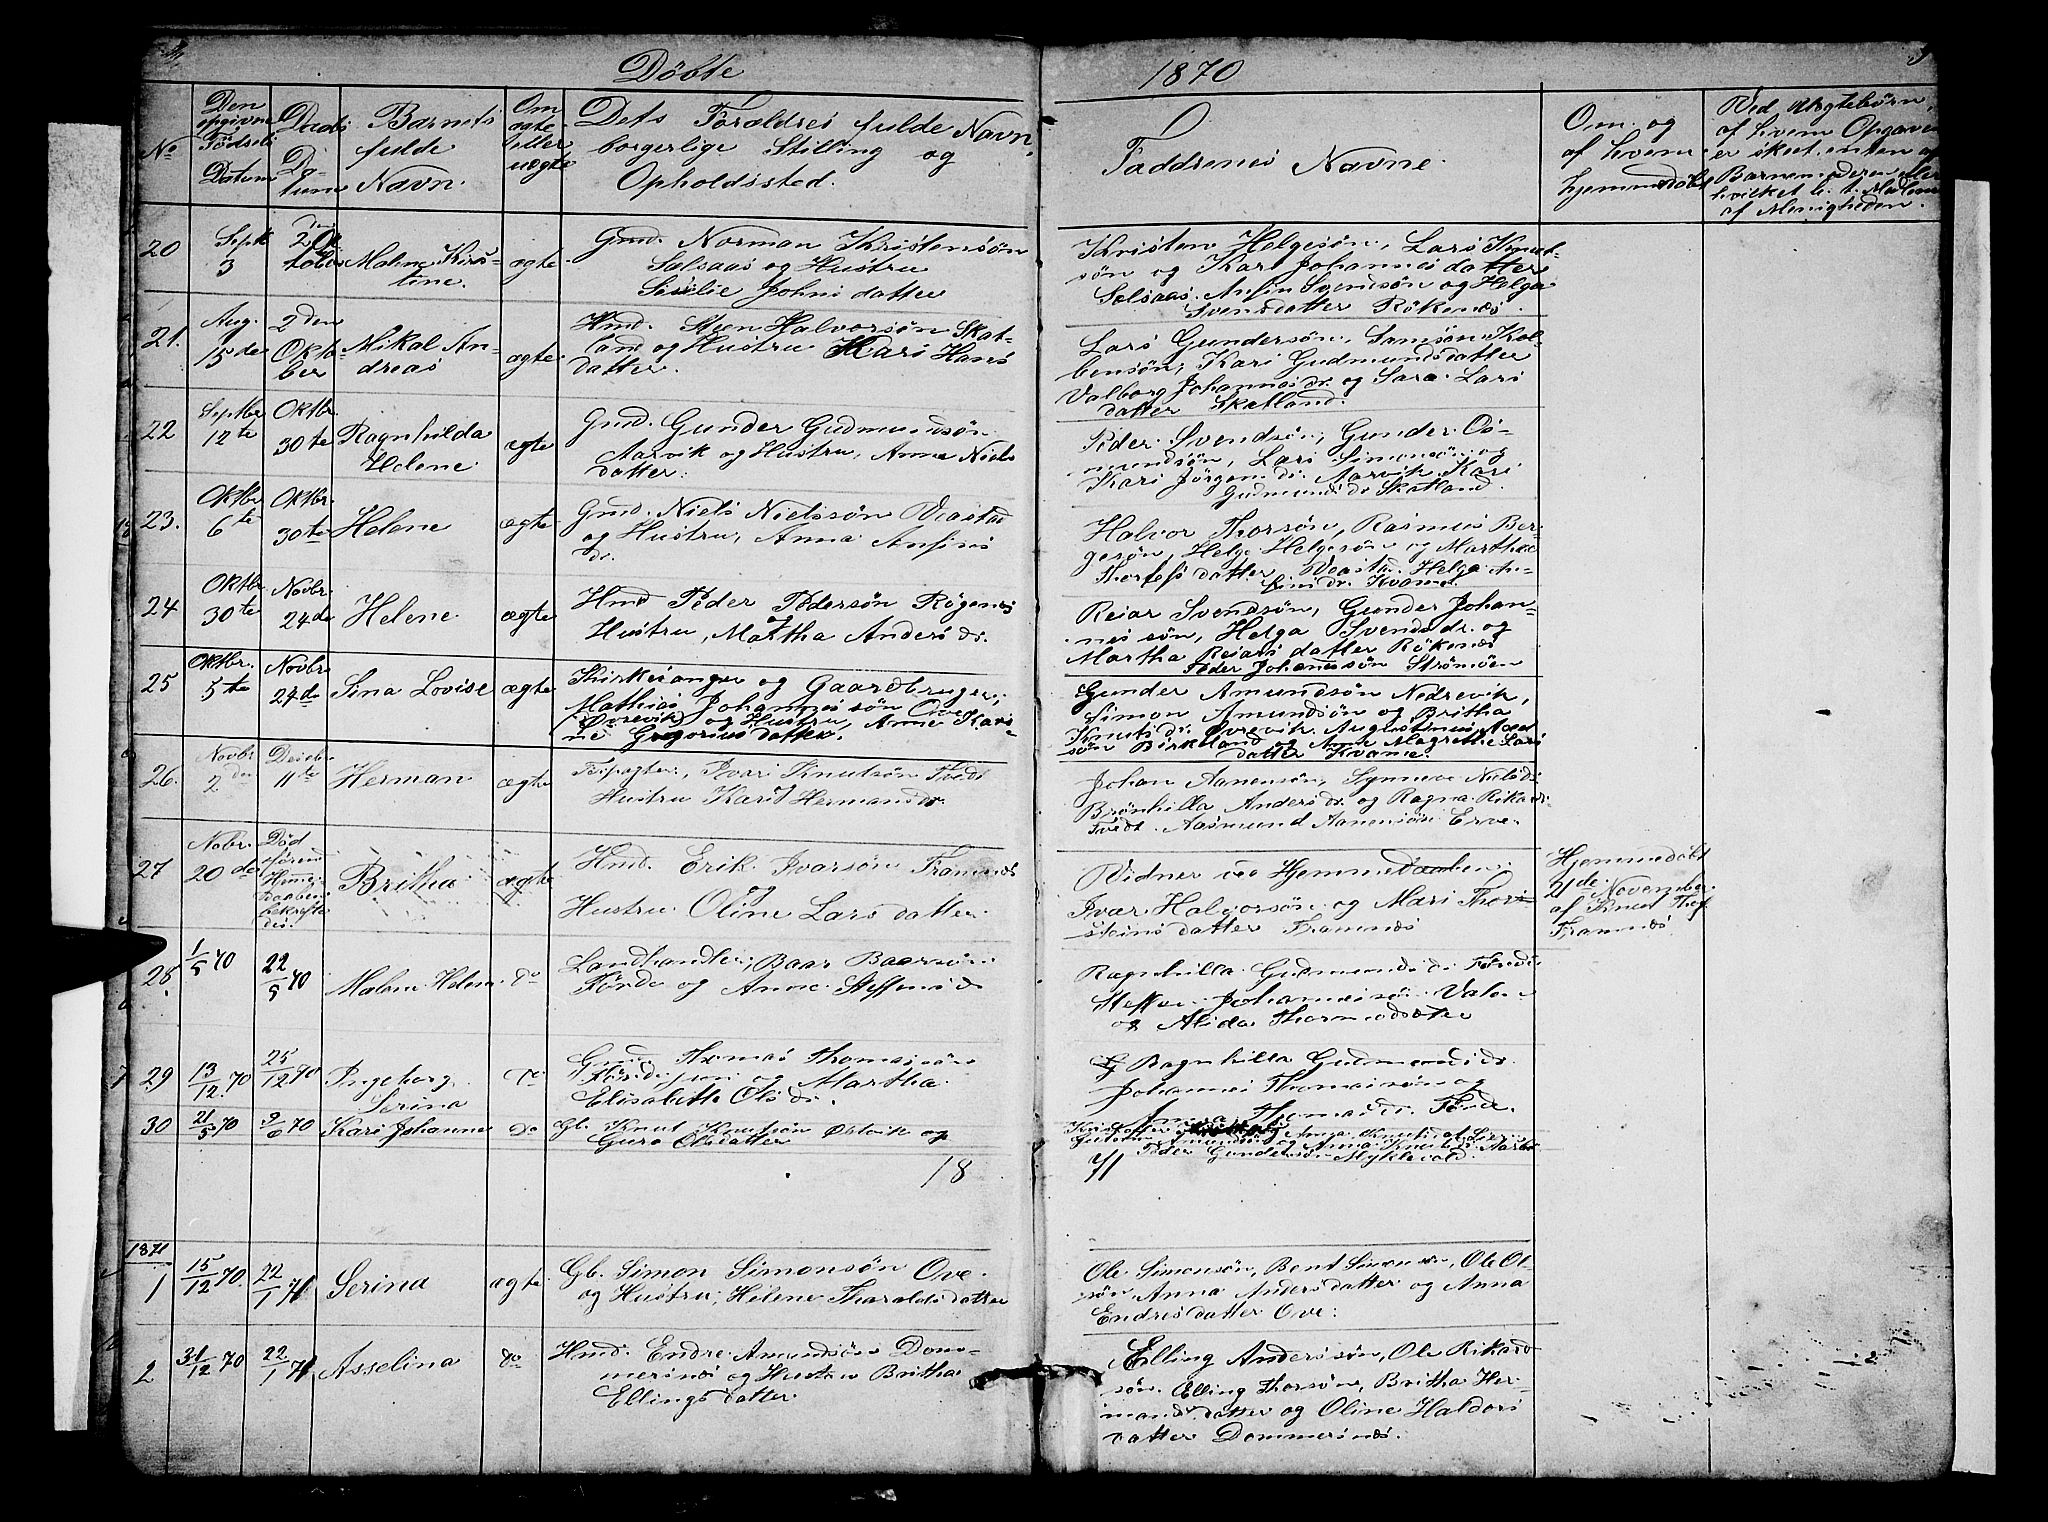 Døbte
1870
No
Den opgivne Fødsels Datum
Daabs Datum
Barnets fulde Navn.
Om ægte eller uægte
Dets Forældres fulde Navn, borgerlige Stilling og Opholdssted.
Faddrenes Navne.
Om og af hvem hjemmedøbt
Ved Uægtebørn, af hvem Opgaven er skeet, enten af Barnemoderen eller
af Menigheden.
20 Sept 3
Malene Kirs-
tine.
ægte.
Gmd. Norman Kristensøn
Sælsaas og Hustru
Johns datter
Kristen Helgesøn, Lars Knut-
søn og Kari Johannesdatter
Sælsaas. Anfin Svendsøn og Helga
Svensdatter Røkenæs.
21. Aug. 15de
2den Oktober
Mikal An-
dreas
ægte.
Hmd. Steen Halvorsøn Skat-
land og Hustru Kari Hans
datter.
Lars Gundersøn, Samsøn Kol-
bensøn, Kari Gudmundsdatter
Valborg Johannesdr. og Sara Lars
datter Skatland.
22 Septbr 12te
Oktbr. 30te
Ragnhilda
Helene.
ægte
Gmd. Gunder Gudmundsøn
Aarvik og Hustru, Anna Niels
datter.
Peder Svendsøn, Gunder Os-
mundsøn, Lars Simonsøn og
Kari Jørgensdr. Aarvik. Kari
Gudmundsdr. Skatland.
23. Oktbr 6te
Oktbr. 30te
Helene
ægte
Gmd. Niels Nielssøn
og Hustru, Anna Anfins
dr.
Halvor Thorsøn, Rasmus Ber-
gesøn, Helge Helgesøn og Martha
datter Helga An-
finsdr. Kvame.
24 Oktbr. 30te
Novbr. 24de
Helene.
ægte
Hmd Peder Pedersøn Røgenes
Hustru, Martha Anders dr.
Reiar Svendsøn, Gunder Johan-
nessøn, Helga Svendsdr. og
Martha Reiars datter Røkenæs
Peder Johannessøn Strømøen
25 Oktbr. 5te
Novbr. 24de
Sina Lovise
ægte
Kirkesanger og Gaardbruger,
Mathias Johannessøn Ove
(Øvrevik) og Hustru, Anne Kari-
ne Gregorius datter.
Gunder Amundsøn Nedrevik,
Simon Amundsøn og Britha
Knutsdr. Øvrevik. Augustinus
søn Birkeland og Anne Magrethe Lars
datter Kvame.
26. Novbr. 2den
Decbr 11te
Herman
ægte
Ivars Knutsøn Tvedt
Hustru Kari Hermansdr.
Johan Aanensøn, Synneve Nielsdr
Brønhilla Andersdr. og Ragna Rikardsdr
Tvedt. Aasmund Aanensøn
27 Nobr. 20de
Død
Hjemme-
daaben
bekræfte-
des.
Britha
ægte
Hmd. Erik Ivarsøn Framnæs
og
Hustru Oline Lars datter.
Vidner ved Hjemmedaaben:
Ivar Halvorsøn og Mari Thor-
steins datter Framnæs
Hjemmedøbt
21de November
af Knut
Framnæs.
28. 1/5 70
22/5 70
Malene Helene
do
Landhandler, Baar Baarsøn
Førde og Anne Steffensdr
Ragnhilla Gudmundsdr. Førde
Steffen Johannessøn Valen
og Alida Thormodsdatter
29 13/12 70
25/12 70
Ingeborg
Serina
do
Gmd. Thomas Thomassøn
Førde jun og Martha
Elisabeth Olsdr.
Ragnhilla Gudmundsdr.
Johannes Thomassøn og
Anna Thomasdr. Førde.
30 21/5 70
9/6 70
Kari Johanne
do
Gb. Knut Knutsøn Ølevik og
Guro Olsdatter
Peder Gundersøn Myklevold.
18
71
1871
1 15/12 70.
22/1 71
Serina
ægte.
Gb. Simon Simonsøn Ove.
og Hustru, Helene Tharaldsdatter
Ole Simonsøn, Bent Simonsøn, Ole Ol-
søn, Anna Andersdatter og Anna
Endresdatter Ove.
2 31/12 70
22/1 71
Asselina
do
Hmd. Endre Amundsøn Dom-
mersnæs og Hustru Britha
Ellingsdatter
Elling Anderssøn, Ole Rikard
søn. Elling Thorsøn, Britha Her-
mandsdatter og Oline Haldors
datter Dommersnæs.